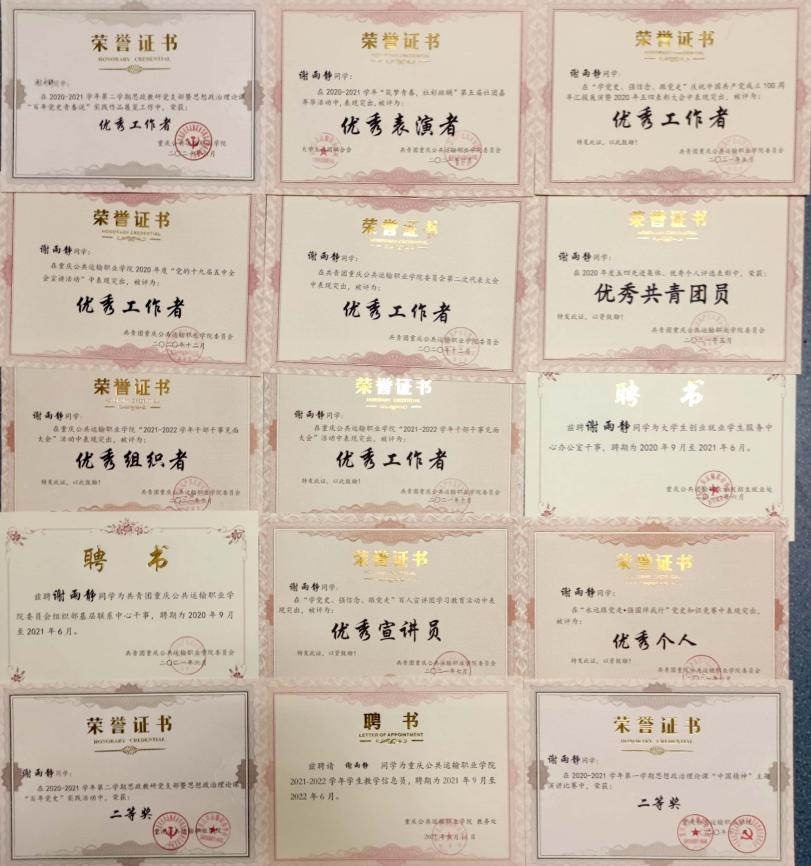 荣誉证书
HONORARY CREDENTIAL
谢雨静同学:
在2020-2021学年第二学期思政教研党支部暨思想政治理论课
“百年党史青春说”实践作品展览工作中,荣获:
优秀工作者
重庆公共运输职业学院
荣誉证书
HONORARY CREDENTIAL
谢雨静同学:
年华活动中,表现突出,被评为:
优秀表演者
共青团重庆公共运输职业学院委员会
荣誉证书
HONORARY CREDENTIAL
谢雨静同学:
在“学党史、强信念、跟党走”庆祝中国共产党成立100周
年汇报展演暨2020年五四表彰大会中表现突出,被评为:
优秀工作者
特发此证,以资鼓励!
共青团重庆公共运输职业学院委员会
二〇二一年五月
荣誉证书
HONORARY CREDENTIAL
谢雨静同学:
在重庆公共运输职业学院2020年度“党的十九届五中全
会宣讲活动”中表现突出,被评为:
优秀工作者
共青团重庆公共运输职业学院委员会
二〇二〇年十二月
荣誉证书
谢雨静同学:
在共青团重庆公共运输职业学院委员会第二次代表大会
中表现突出,被评为:
优秀工作者
共青团重庆公共运输职业学院委员会
二〇二〇年十二月
荣誉证书
HONORARY CREDENTIAL
谢雨静同学:
在2020年度五四先进集体、优秀个人评选表彰中,荣获:
优秀共青团员
特发此证,以资鼓励!
共青团重庆公共运输职业学院委员会
二〇二一年五月
荣誉证书
谢雨静同学:
在重庆公共运输职业学院“2021-2022学年干部干事见面
大会”活动中表现突出,被评为:
优秀组织者
特发此证,以此鼓励!
共青团重庆公共运输职业学院委员会
荣誉证书
HONORARY CREDENTIAL
谢雨静同学:
在重庆公共运输职业学院“2021-2022学年干部干事见面
大会”活动中表现突出,被评为:
优秀工作者
特发此证,以此鼓励!
共青团重庆公共运输职业学院委员会
二〇二一年十月
聘 书
兹聘谢雨静同学为大学生创业就业学生服务中
心办公室干事,聘期为2020年9月至2021年6月。
聘 书
兹聘谢雨静同学为共青团重庆公共运输职业学
院委员会组织部基层联系中心干事,聘期为2020年9月
至2021年6月。
共青团重庆公共运输职业学院委员会
二〇二一年六月
荣誉证书
谢雨静同学:
在“学党史、强信念、跟党走”百人宣讲团学习教育活动中表
现突出,被评为:
优秀宣讲员
特发此证,以资鼓励!
共青团重庆公共运输职业学院委员会
二〇二一年七月
荣誉证书
谢雨静同学:
在“永远跟党走·强国伴我行”党史知识竞赛中表现突出,
被评为:
优秀个人
特发此证,以资鼓励!
共青团重庆公共运输职业学院委员会
荣誉证书
HONORARY CREDENTIAL
谢雨静同学:
在2020-2021学年第二学期思政教研党支部暨思想政治理论课
“百年党史”实践活动中,荣获:
二等奖
聘 书
LETTER OF APPOINTMENT
兹聘请 谢雨静 同学为重庆公共运输职业学院
2021-2022学年学生教学信息员,聘期为2021年9月至
2022年6月。
重庆公共运输职业学院 教务处
荣誉证书
HONORARY CREDENTIAL
谢雨静同学:
在2020-2021学年第一学期思想政治理论课“中国精神”主题
演讲比赛中,荣获:
二等奖